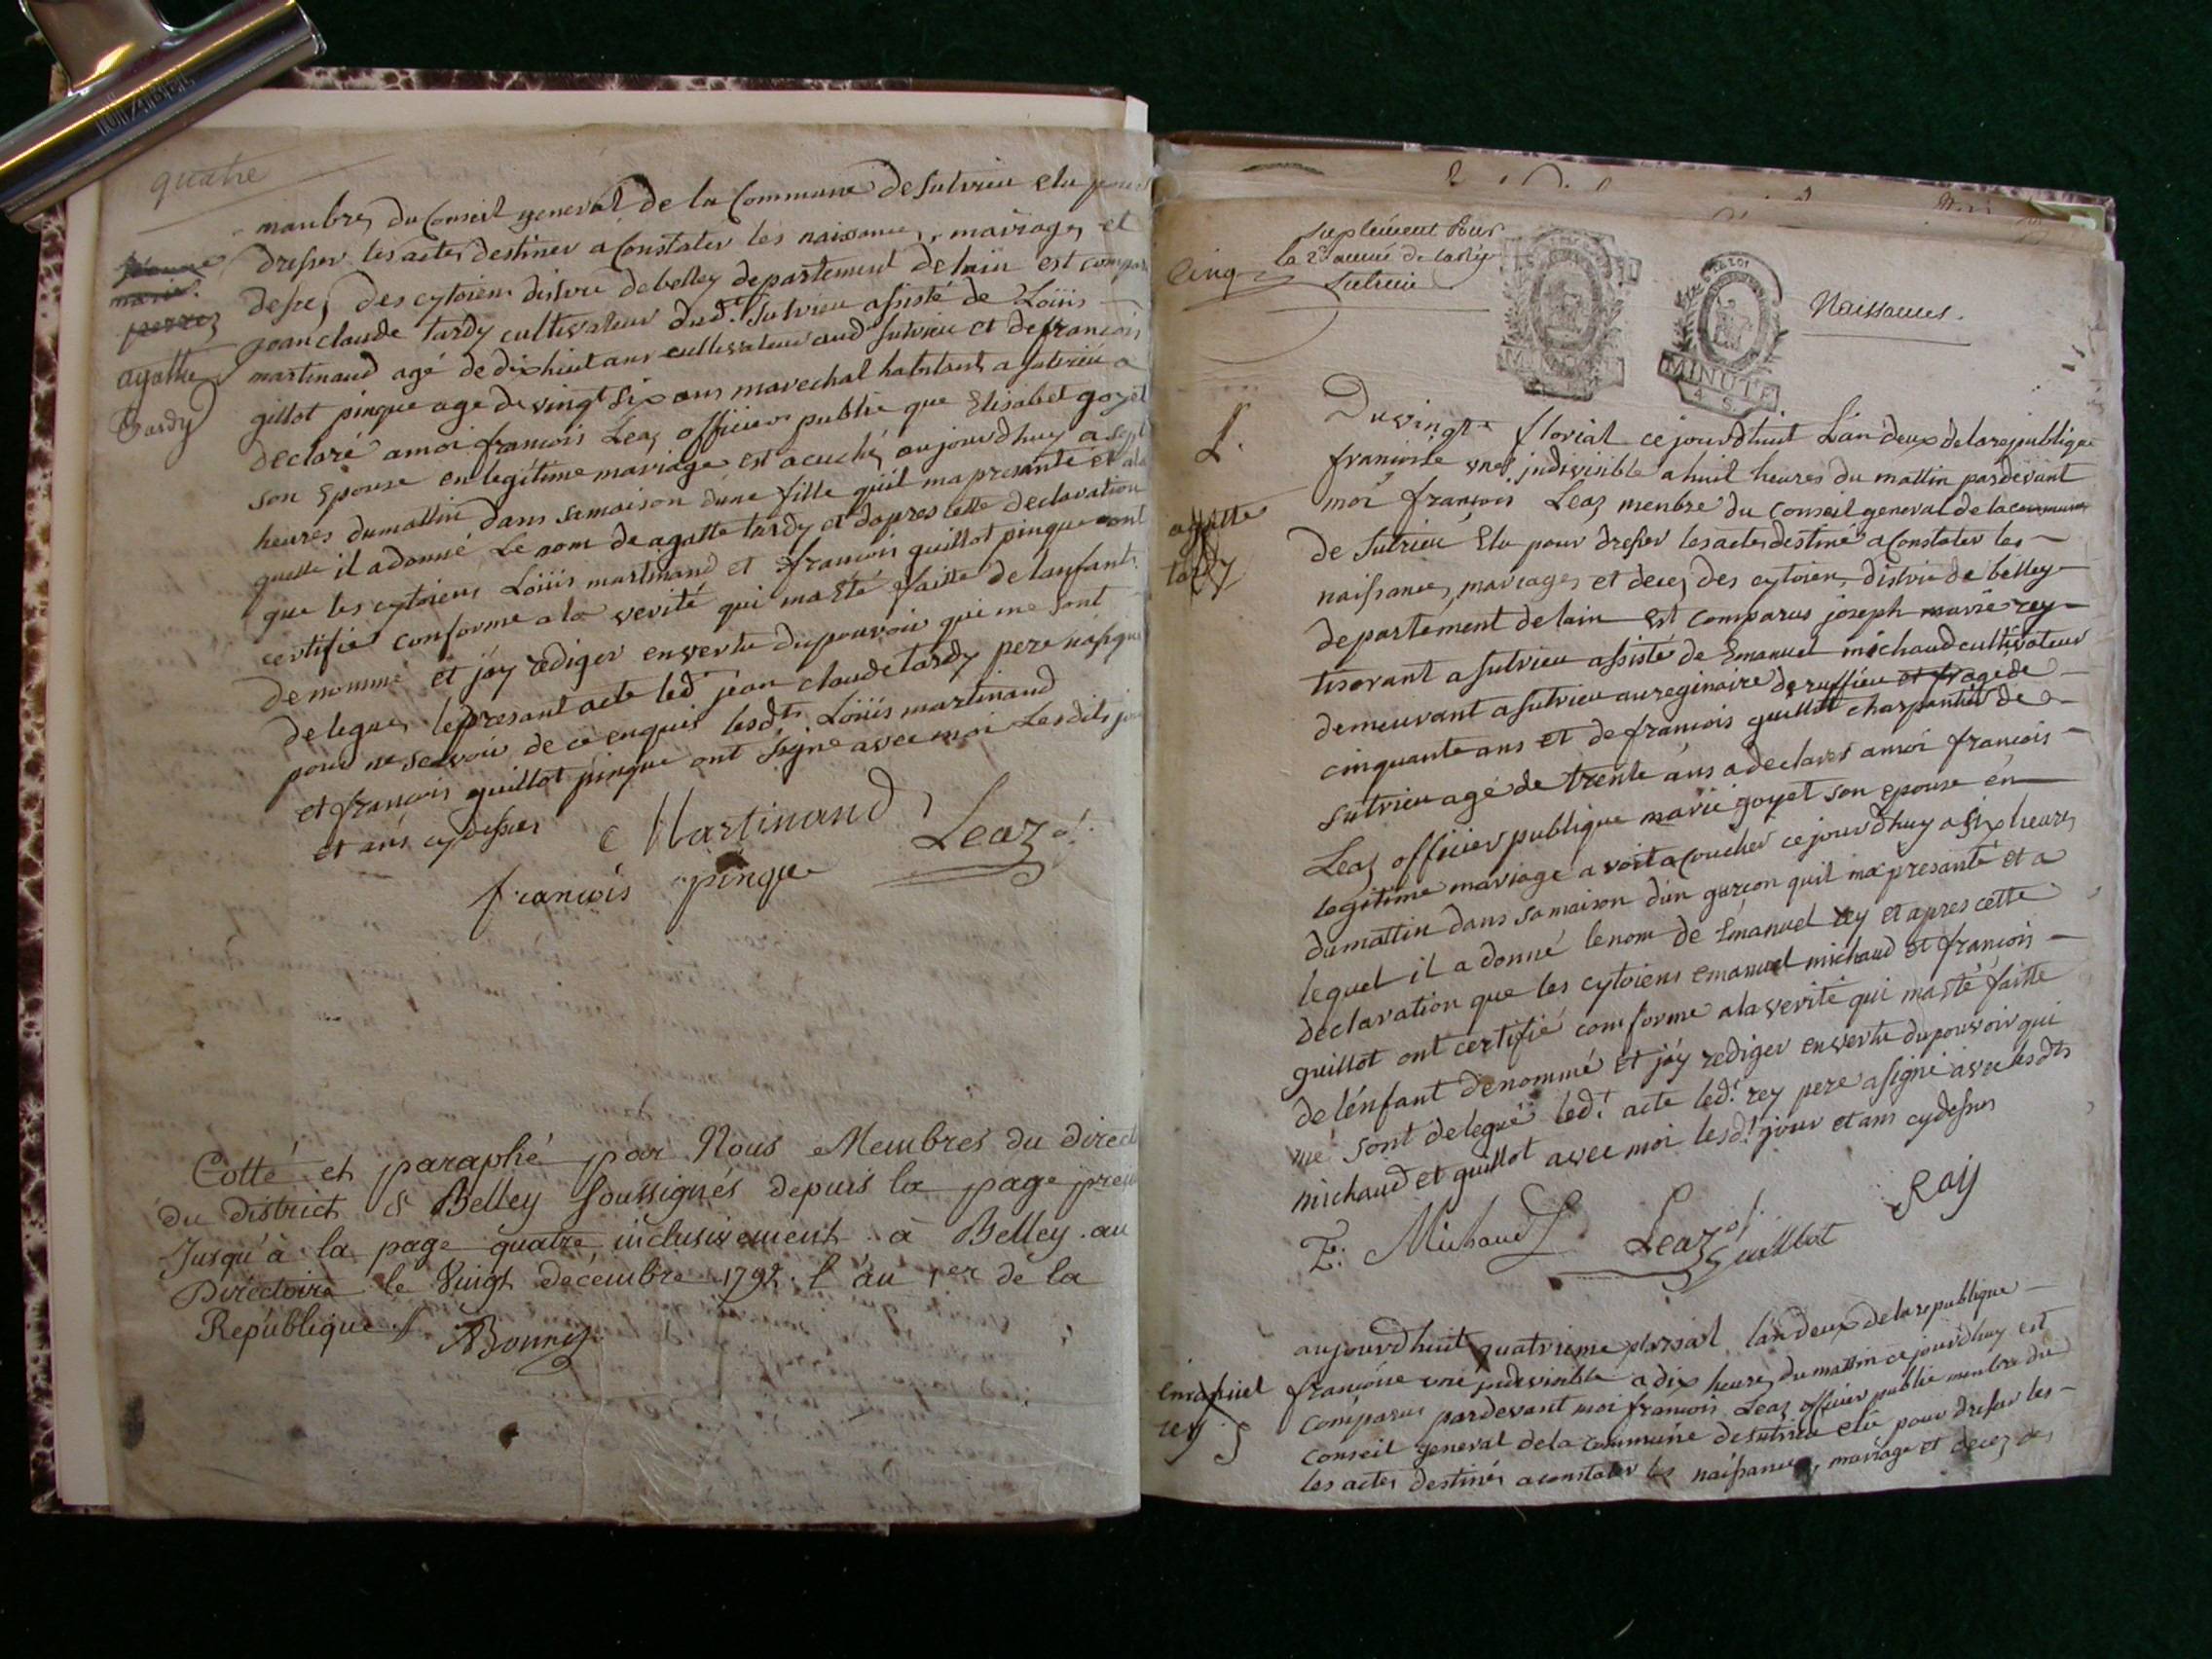 quatre
manbre, du Conseil general de la Commune de Sutrieu elu pour
dresser les actes destiner a Constater les naissances, mariages et
deses des cytoiens distric de belley departement de lain est compar
jean claude tardy cultivateur dud.t Sutrieu assisté de Loüis
martinaud agé de dixhuit ans cultivateur aud Sutrieu et de francois
gillot pinque age de vingt six ans marechal habitant a Sutrieu a
declaré amoi francois Leaz officier public que Elisabet goyet
son Epouse en legitime mariage est acuché aujourdhuy a sept
heures dumattin dans samaison dune fille quil ma presanté et ala
quelle il adonné Le nom de agatte tardy et dapres cette declaration
que les cytoiens Loüis martinand et francois guillot pinque ont
certifié conforme ala verité qui masté faitte de lanfant
denommé et jáy rediger envertu dupouvoir qui me sont
delegues lepresant acte led.t jean claude tardy pere na signé
pour ne scavoir de ce enquis lesdts Loüis martinand
et francois guillot pinque ont Signe avec moi Lesdits jour
et ans cydessus
Martinand
Leaz of.
francois pinque
jeanne
marie
perrez
agathe
tardy
Cotté et paraphé par Nous Membres du direct
du district de Belley soussignés depuis la page prem
Jusqu'à la page quatre inclusivement à Belley au
Directoire le Vingt décembre 1792. l'an 1er de la
République
Bonney
Cinq
Suplément Pour
la 2e année de la Rep
Sutrieu
MINUTE
LA LOI
MINUTE
4 S.
Naissances.
Du vingt florial cejourdhuit Lán deux delarepublique
francoise vne jndivisible a huit heures du mattin pardevant
moi francois Leaz menbre du Conseil general de lacommune
de Sutrieu Elu pour dresser lesactes destiné a Constater les
naissances, mariages et deces des cytoiens distric de belley
departement de lain Est comparus joseph marie rey
tiserant a Sutrieu assisté de Emanuel michaud cultivateur
demeurant a Sutrieu aureginaire de ruffieu et fragede
cinquante ans et de francois guillot charpantier de
Sutrieu agé de trente ans adeclarer amoi francois
Leaz officier publique marie goyet son epouse én
legitime mariage avoit acoucher cejourdhuy a six heures
dumattin dans samaison dún garcon quil ma presanté et a
lequel il a donné lenom de Emanuel rey et apres cette
declaration que les cytoiens emanuel michaud et francois
guillot ont certifié comforme alaverité qui masté faitte
delénfant denommé et jáy rediger envertu dupouvoir qui
me sont delegué led.t acte led.t rey pere asigné avec lesdts
michaud et guillot avec moi lesd.t jour et ans cydessus
E. Michaud
Leaz of.
Guillot
Ray
agatte
tardy
emanuel
rey
aujourdhuit quatrieme prerial lándeux delarepublique
francoise vne jndivisible a dix heures dumattin cejourdhuy est
comparus pardevant moi francois Leaz officier public menbre du
Conseil general dela commune desutrieu elû pour dresser les
les actes destinés aconstater les naissances, mariage et decez des